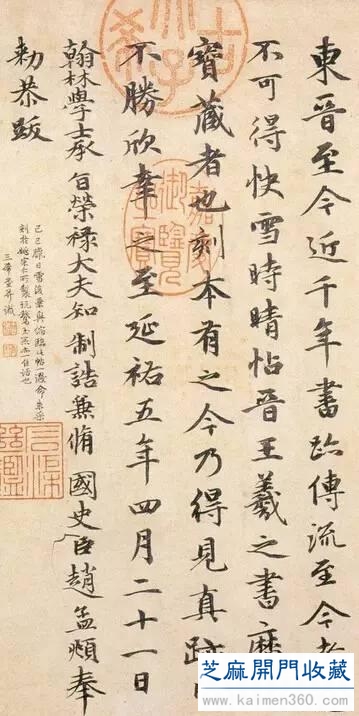 東晉至今近千年書跡傳流至今者
不可得快雪時晴帖晉王羲之書歷
寶藏者也刻本有之今乃得見真跡
不勝欣幸之至延祐五年四月二十一日
翰林學士承旨榮祿大夫知制誥兼脩國史臣趙孟頫奉
勑恭跋
己巳臘日雪後
三希堂并識
嘉慶御覽之寶
芝麻開門收藏
www.kaimen360.com